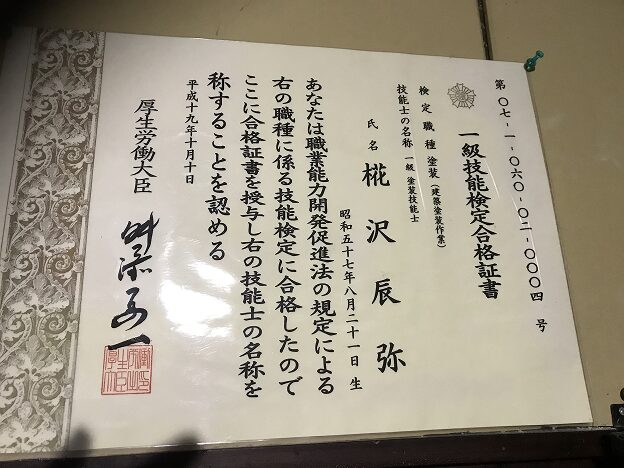 第〇七-一-〇六〇-〇二-〇〇〇四 号
一級技能検定合格証書
検定職種 塗装(建築塗装作業)
技能士の名称 一級 塗装技能士
氏名 椛沢辰弥
昭和五十七年八月二十一日 生
あなたは職業能力開発促進法の規定による
右の職種に係る技能検定に合格したので
ここに合格証書を授与し右の技能士の名称を
称することを認める
平成十九年十月十日
厚生労働大臣
舛添要一